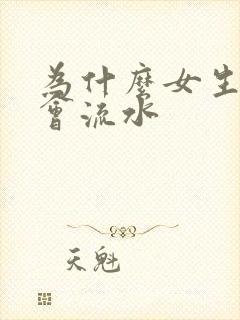 為什麼女生
會流水
天魁